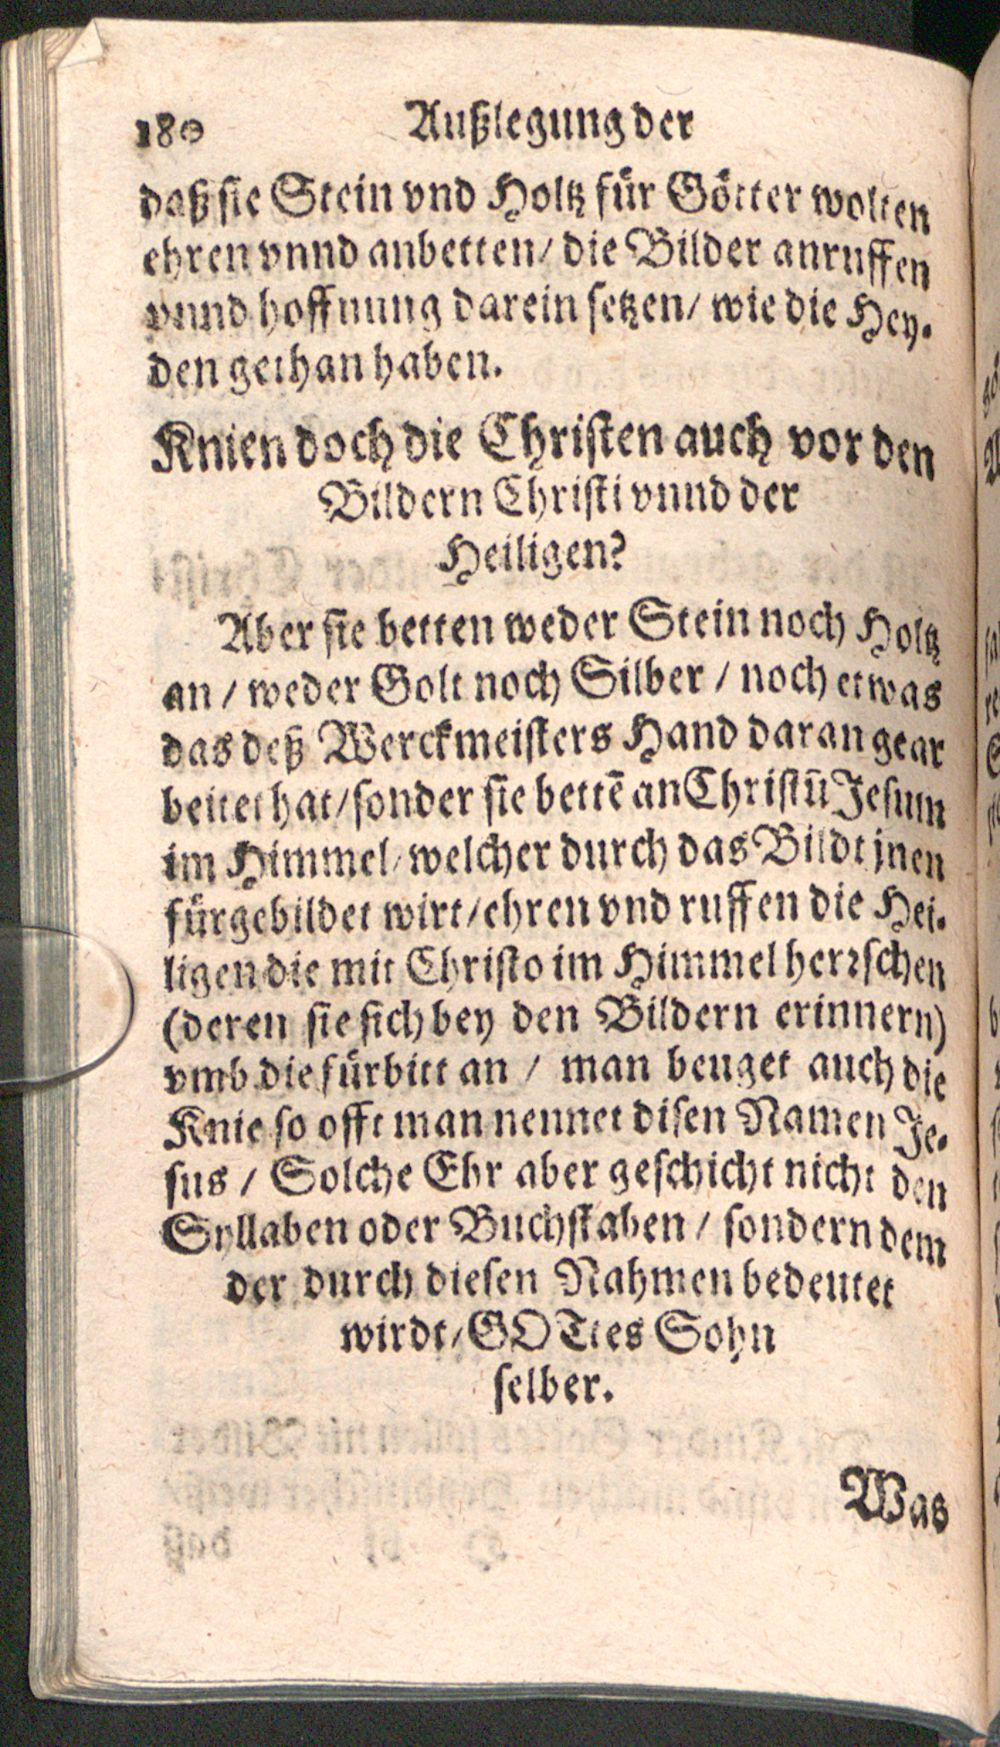 180 Außlegung der
daß sie Stein vnd Holtz für Götter wolten
ehren vnnd anbetten/ die Bilder anruffen
vnnd hoffnung darein setzen/ wie die Hey-
den gethan haben.
Knien doch die Christen auch vor den
Bildern Christi vnnd der
Heiligen?
Aber sie betten weder Stein noch Holtz
an / weder Golt noch Silber / noch etwas
das deß Werckmeisters Hand daran gear
beitet hat/sonder sie bettē an Christū Jesum
im Himmel/welcher durch das Bildt jnen
fürgebildet wirt/ehren vnd ruffen die Hei-
ligen die mit Christo im Himmel herrschen
(deren sie sich bey den Bildern erinnern)
vmb die fürbitt an / man beuget auch die
Knie so offt man nennet disen Namen Je-
sus / Solche Ehr aber geschicht nicht den
Syllaben oder Buchstaben / sondern dem
der durch diesen Nahmen bedeutet
wirdt/GOTtes Sohn
selber.
Was